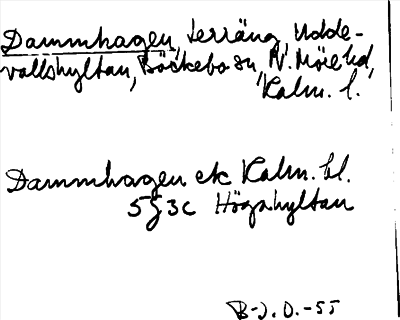 Dammhagen, terräng, Udde-
vallshyltan, Böckebo sn, N. Möre hd,
Kalm. l.
Dammhagen ek Kalm. bl.
5g 3c Högahyltan
B-J. O. -55